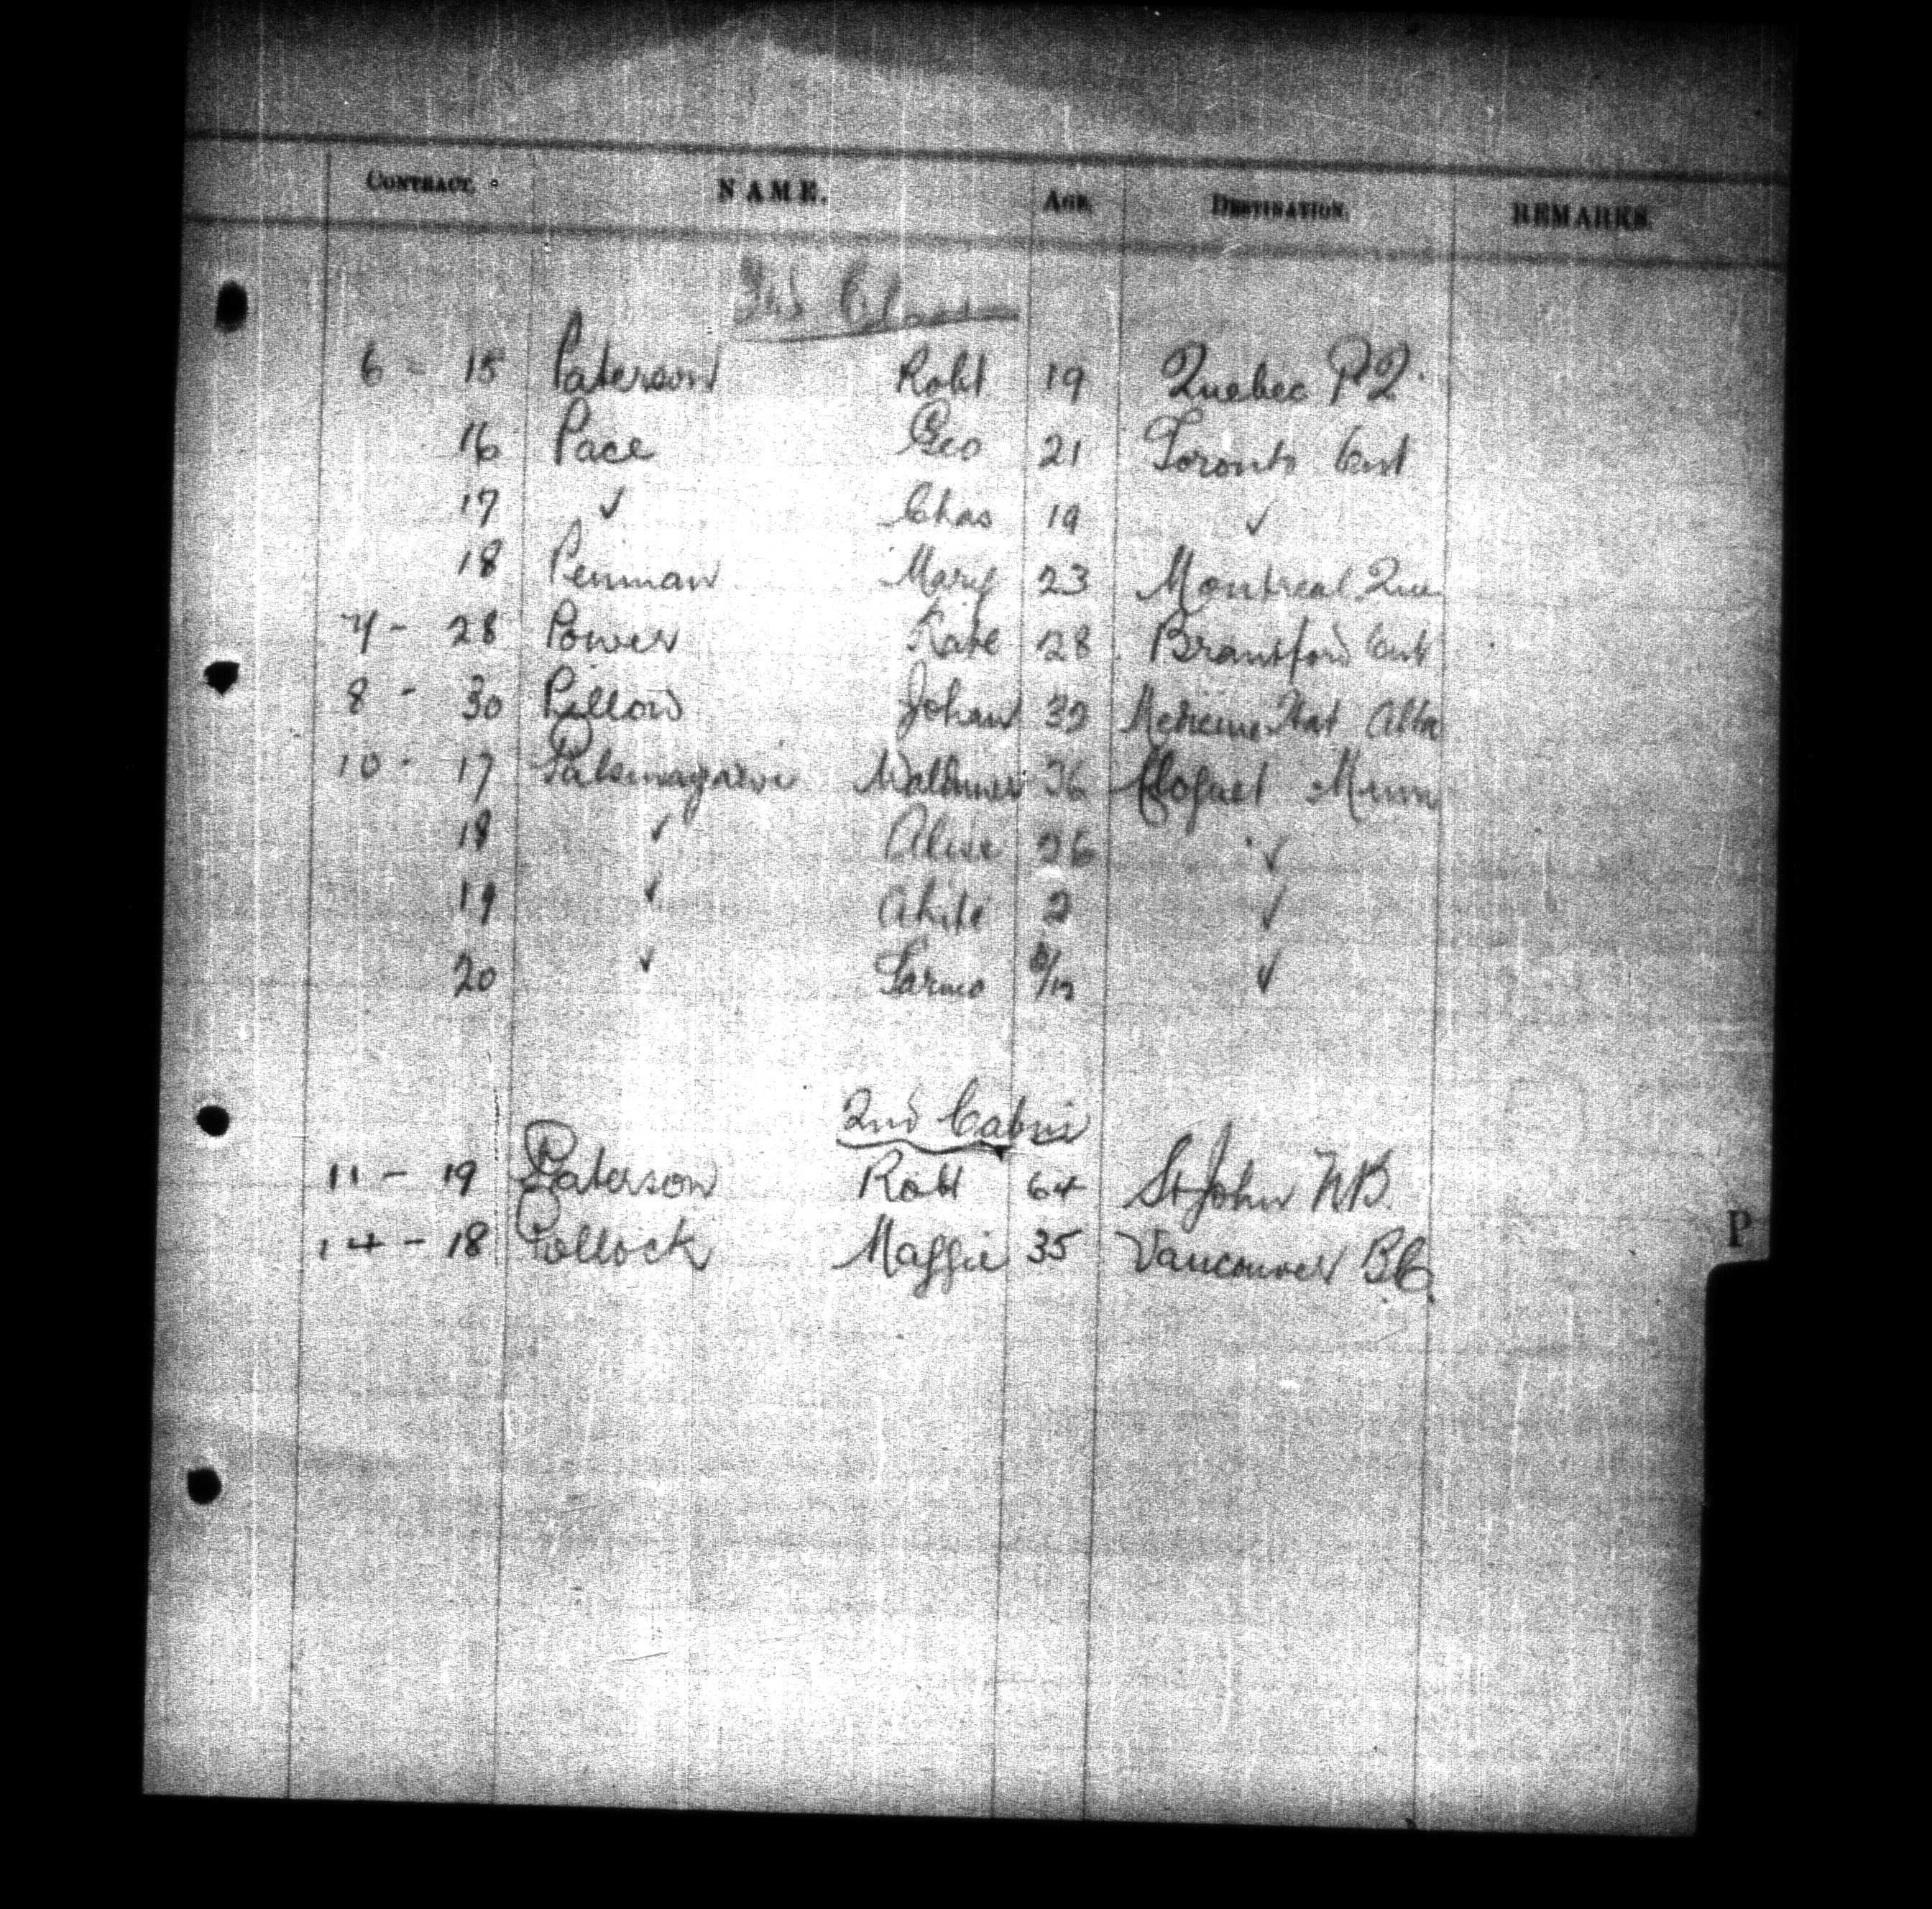 CONTRACT. NAME. AGE. DESTINATION. REMARKS.
3rd Class
6 - 15 Paterson Robt 19 Quebec P2.
16 Pace Geo 21 Toronto Ont
17 ✓ Chas 19 ✓
18 Penman Mary 23 Montreal Que
7 - 28 Power Kate 28 Brantford Ont
8 - 30 Pillow Johan 32 Medicine Hat Alta
10 - 17 36 Cloquet Minn
18 ✓ 26 ✓
19 ✓ 2 ✓
20 ✓ ✓
2nd Cabin
11 - 19 Paterson Robt 64 St John N.B.
14 - 18 Pollock Maggie 35 Vancouver B.C.
P